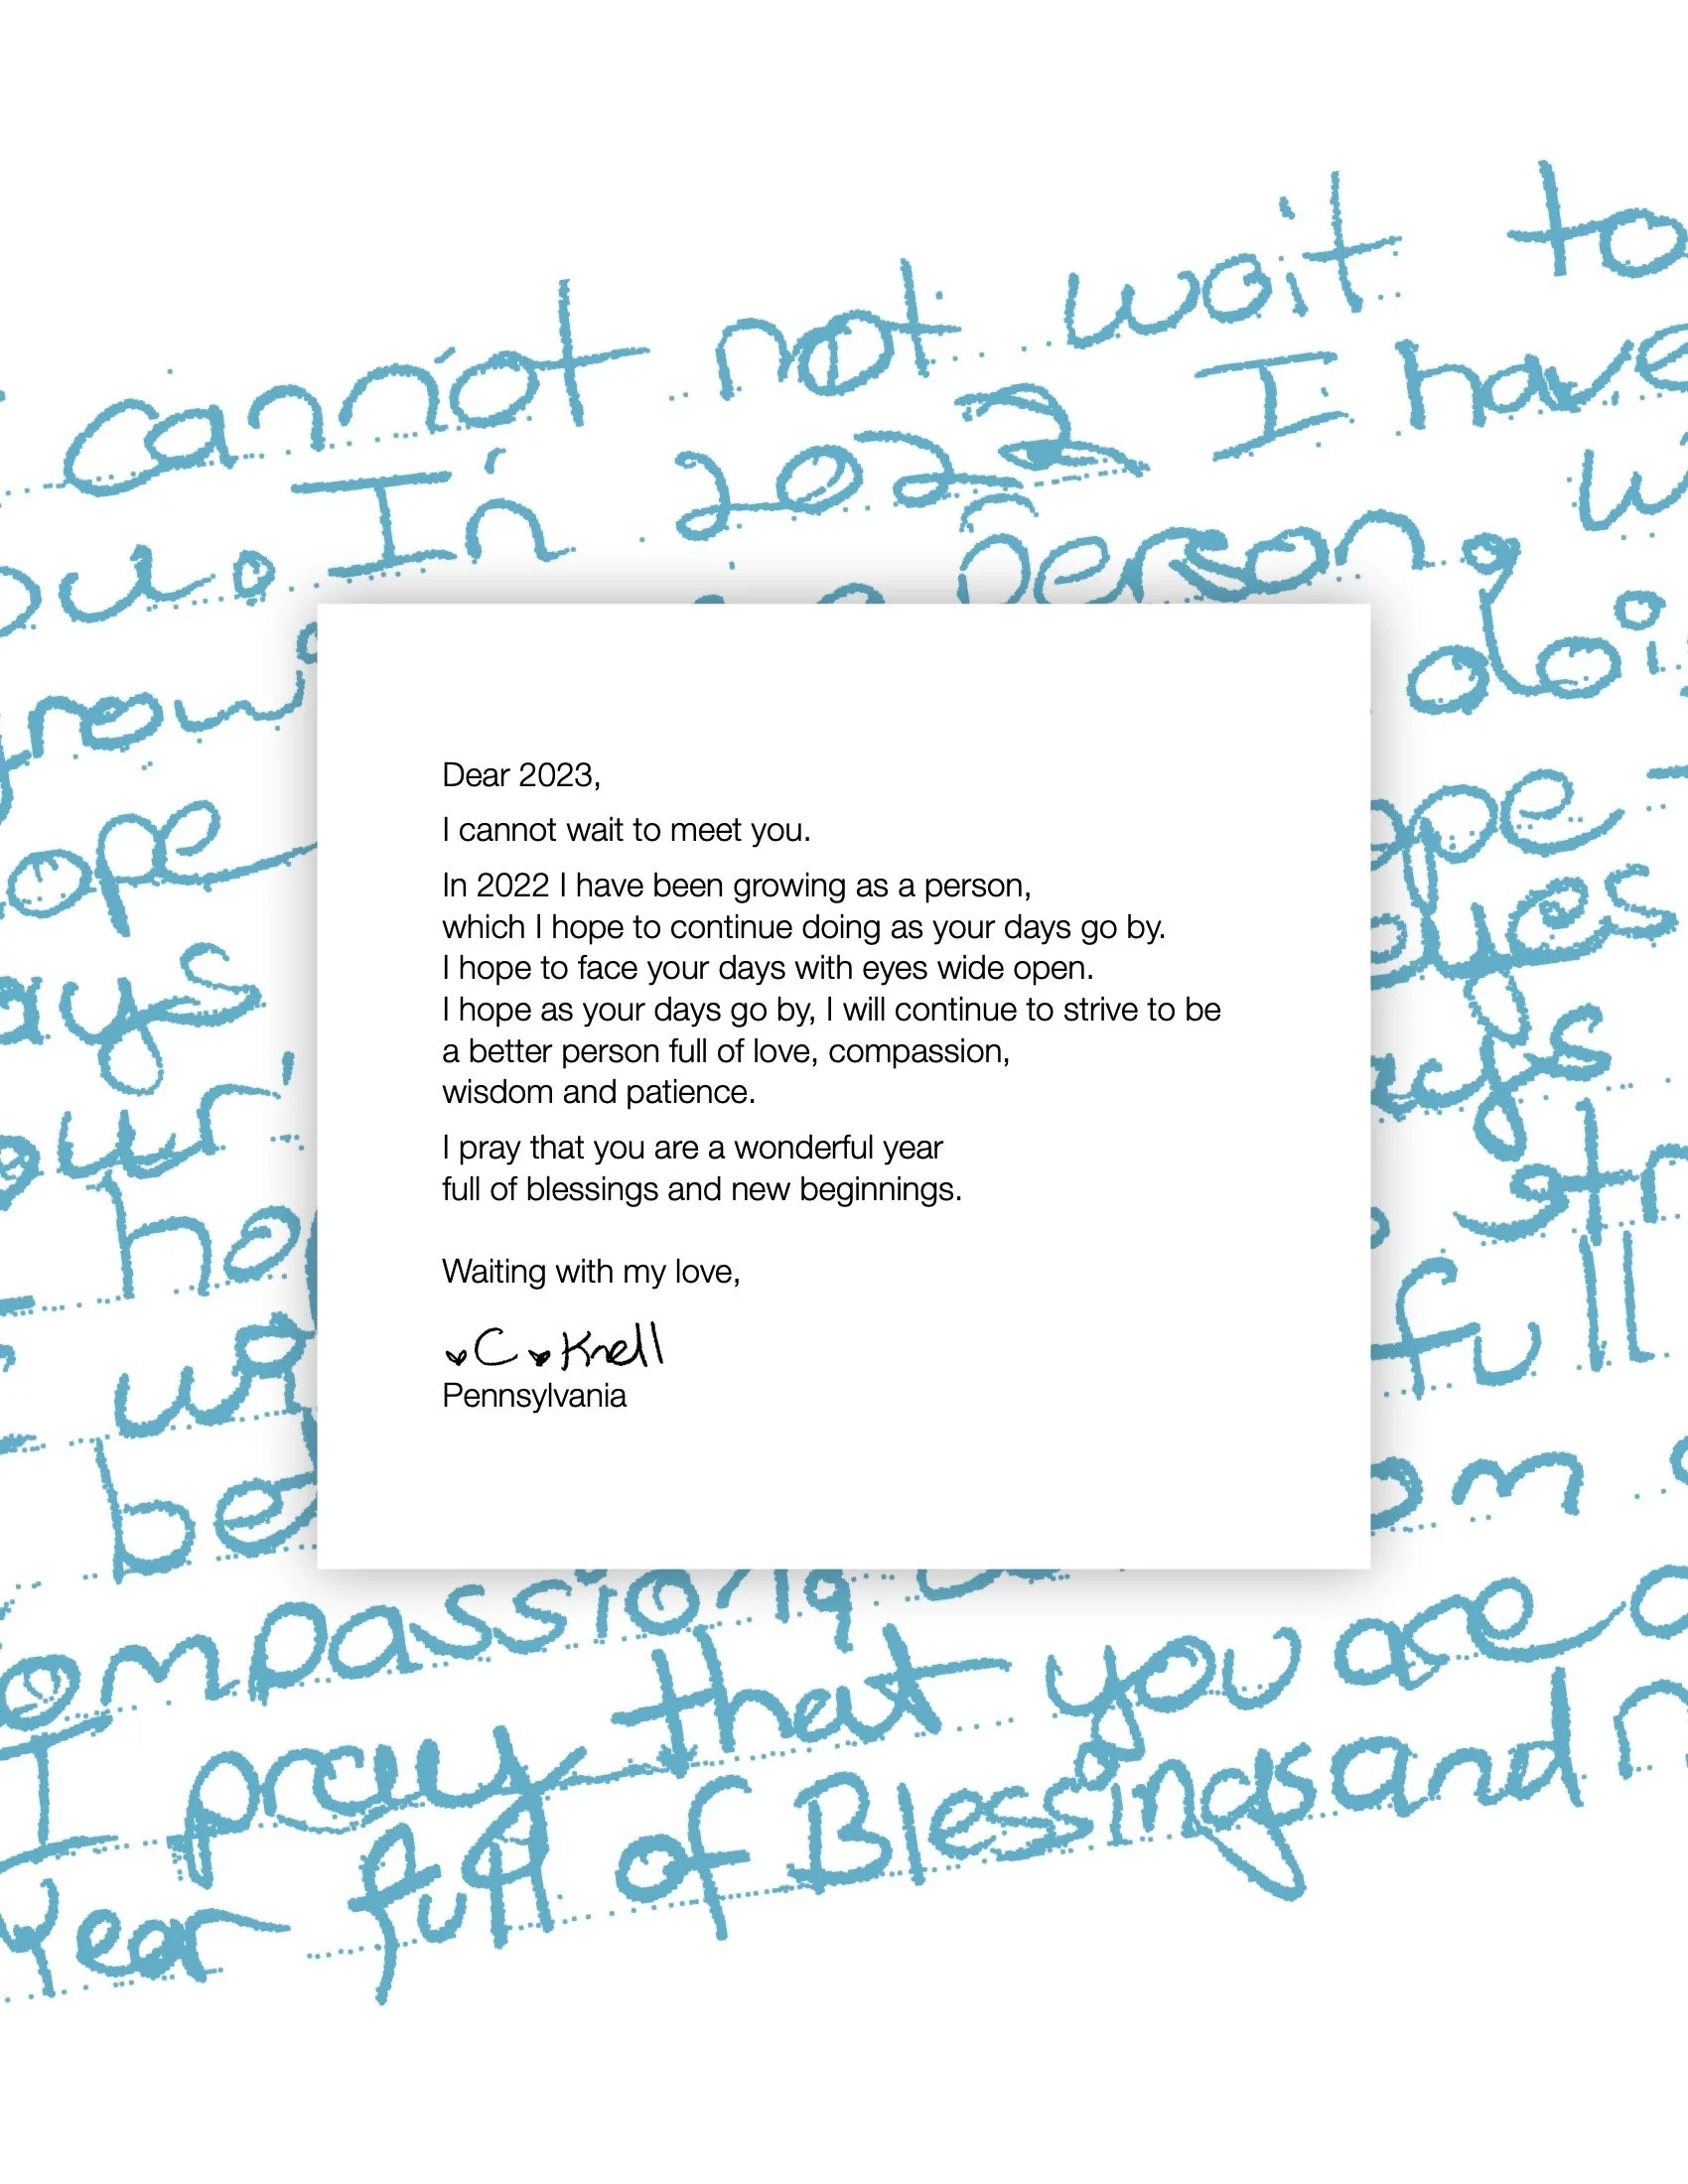 cannot not wait to
ou. In 2022 I have
person, w
grow doi
ope ope
ays eyes
our' ays
ho str
wi full
be om
ompassion,
I pray that you are a
Year full of Blessings and n
Dear 2023,
I cannot wait to meet you.
In 2022 I have been growing as a person,
which I hope to continue doing as your days go by.
I hope to face your days with eyes wide open.
I hope as your days go by, I will continue to strive to be
a better person full of love, compassion,
wisdom and patience.
I pray that you are a wonderful year
full of blessings and new beginnings.
Waiting with my love,
C Knell
Pennsylvania